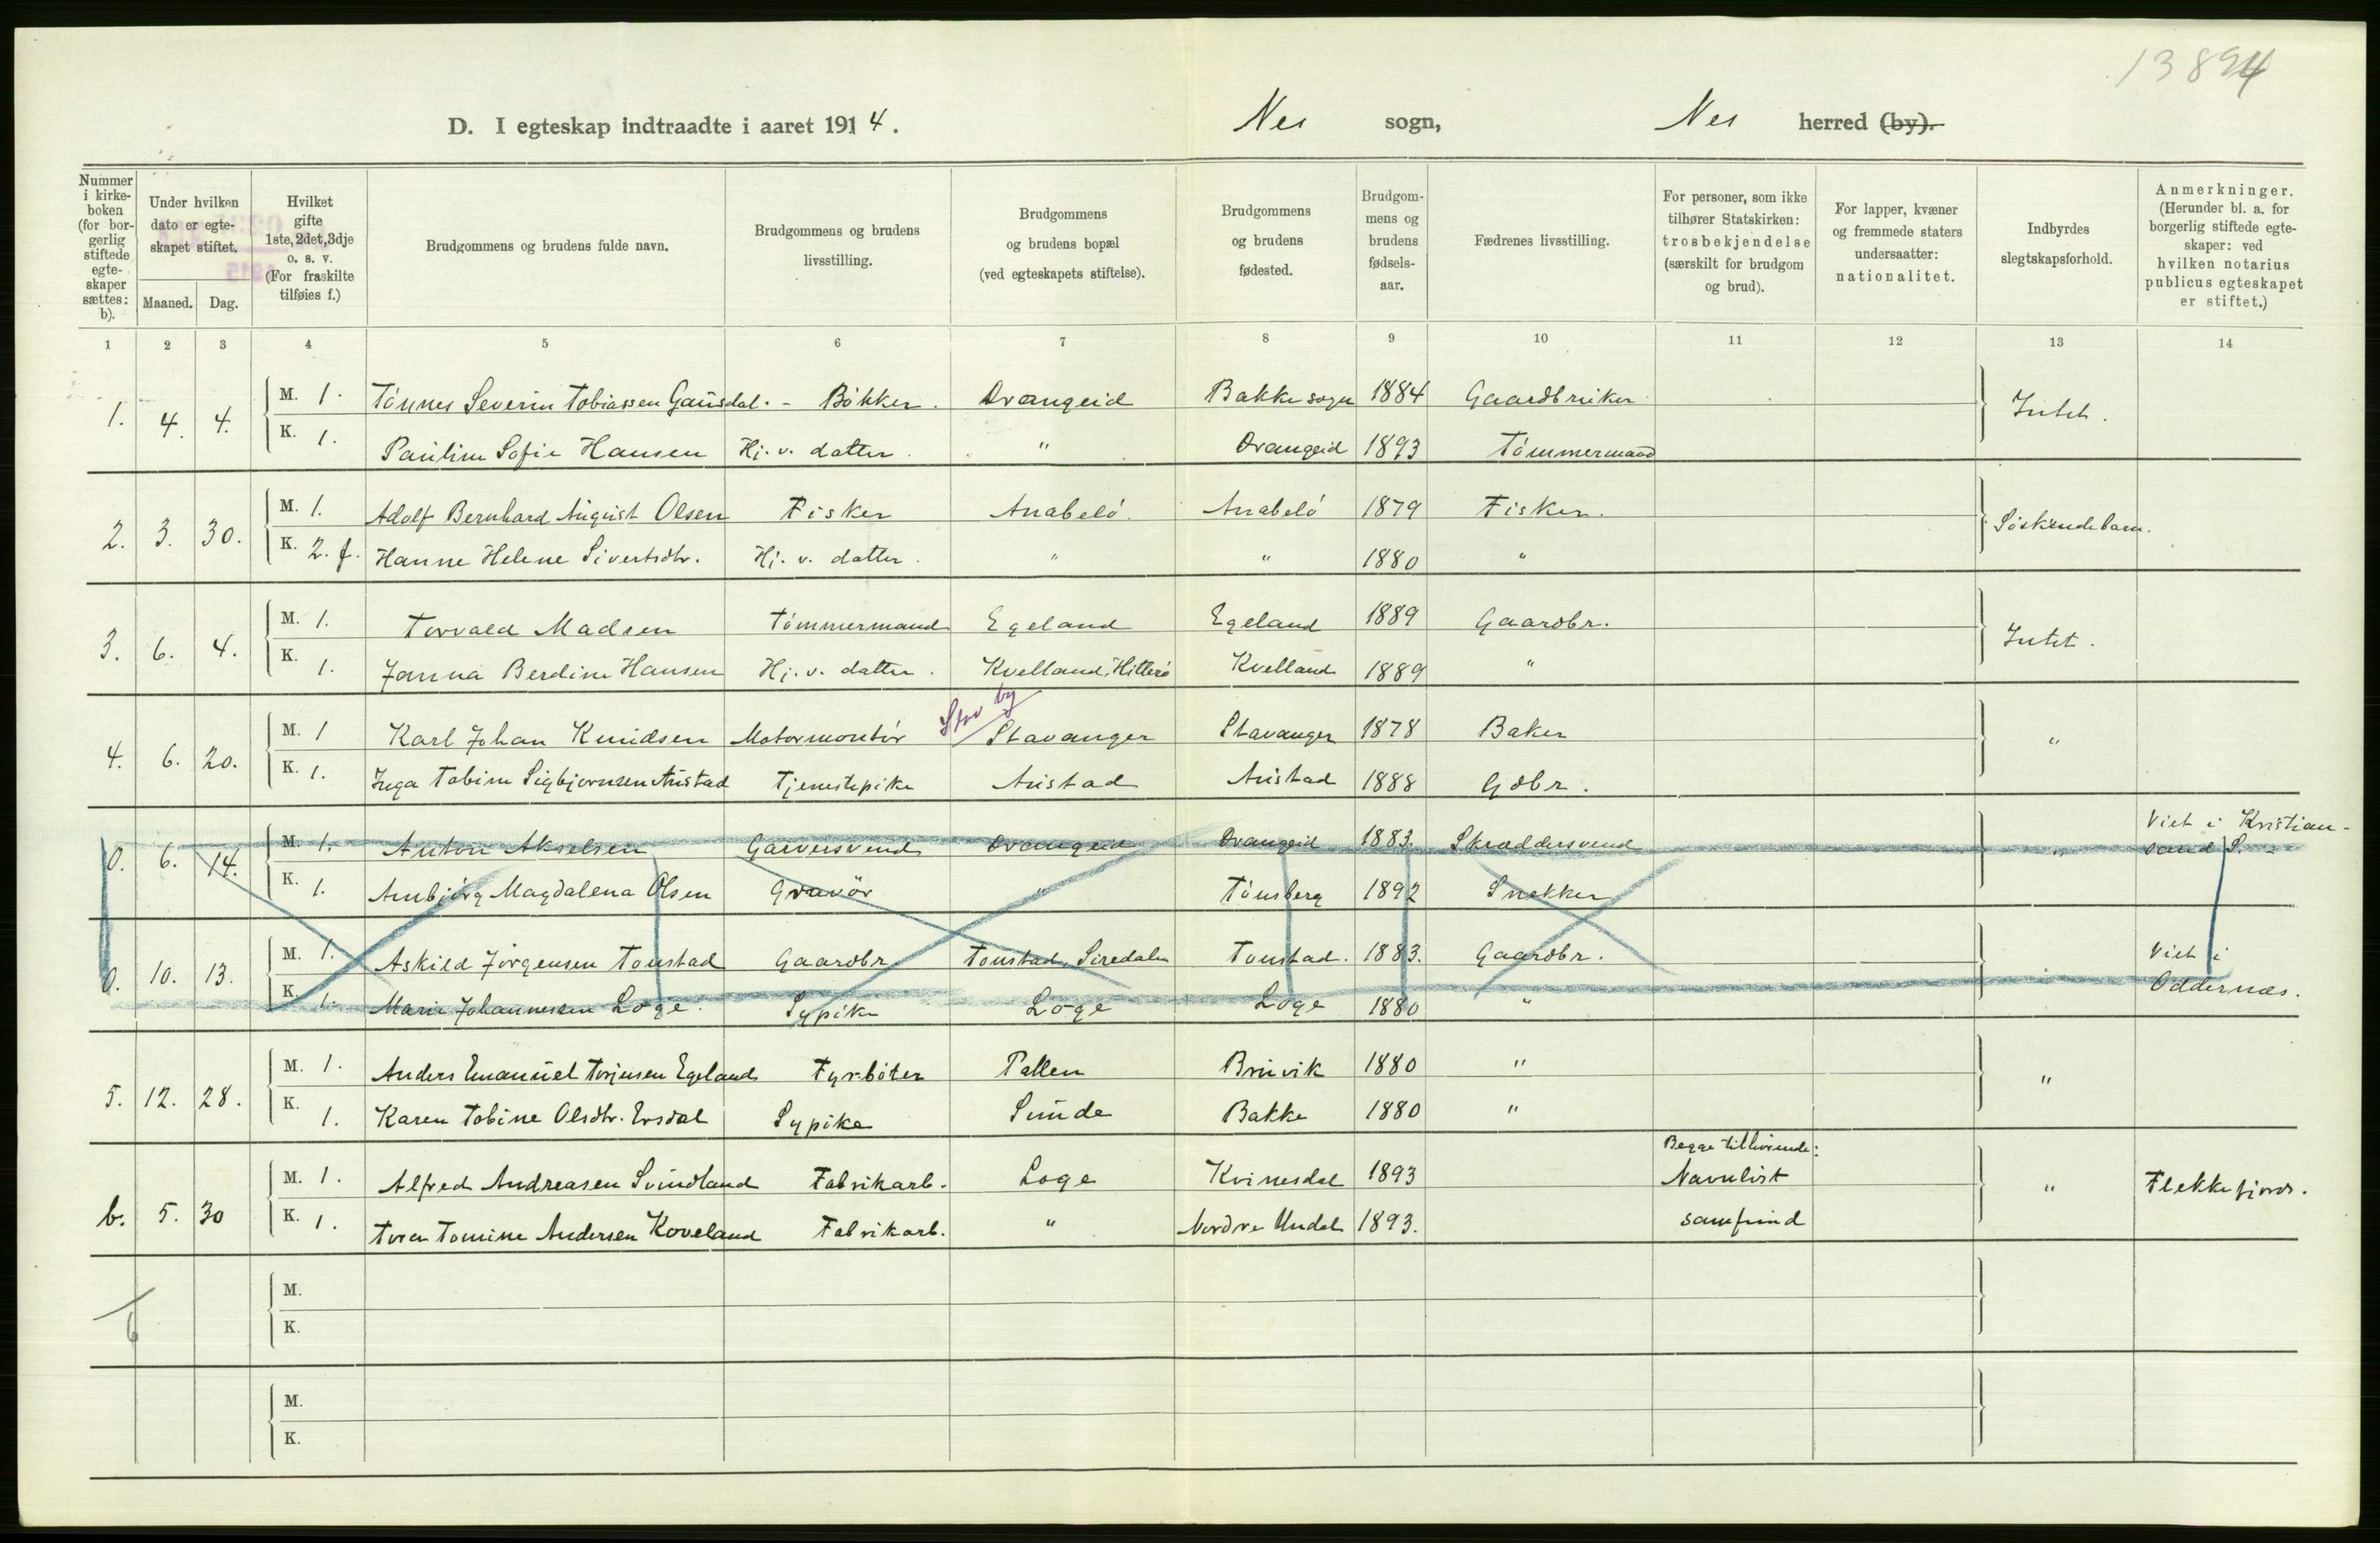 13894
D. I egteskap indtraadte i aaret 1914. Nes sogn, Nes herred (by).
Nummer i kirkeboken (for borgerlig stiftede egteskaper sættes: b). Under hvilken dato er egteskapet stiftet. Maaned. Dag. Hvilket gifte 1ste, 2det, 3dje o. s. v. (For fraskilte tilføies f.) Brudgommens og brudens fulde navn. Brudgommens og brudens livsstilling. Brudgommens og brudens bopæl (ved egteskapets stiftelse). Brudgommens og brudens fødested. Brudgommens og brudens fødselsaar. Fædrenes livsstilling. For personer, som ikke tilhører Statskirken: trosbekjendelse (særskilt for brudgom og brud). For lapper, kvæner og fremmede staters undersaatter: nationalitet. Indbyrdes slegtskapsforhold. Anmerkninger. (Herunder bl. a. for borgerlig stiftede egteskaper: ved hvilken notarius publicus egteskapet er stiftet.)
1 2 3 4 5 6 7 8 9 10 11 12 13 14
1. 4. 4. M. 1. Tönnes Severin Tobiassen Gausdal. - Bökker. Drangeid Bakke sogn 1884 Gaardbruker Intet.
K. 1. Pauline Sofie Hansen Hj. v. datter. " Drangeid 1893 Tömmermand
2. 3. 30. M. 1. Adolf Bernhard August Olsen Fisker Anabelö. Anabelö 1879 Fisker. Söskendebarn.
K. 2. f. Hanne Helene Sivertsdtr. Hj. v. datter. " " 1880 "
3. 6. 4. M. 1. Torvald Madsen Tömmermand Egeland Egeland 1889 Gaardbr. Intet.
K. 1. Janna Berdine Hansen Hj. v. datter. Kvelland, Hitterö Kvelland 1889 "
Stav by
4. 6. 20. M. 1 Karl Johan Knudsen Motormontör Stavanger Stavanger 1878 Baker "
K. 1. Inga Tobine Sigbjornsen Austad Tjenestepike Austad Austad 1888 Gdbr.
0. 6. 14. M. 1. Anton Akselsen Garversvend Drangeid Drangeid 1883. Skræddersvend " Viet i Kristiansand S.
K. 1. Anbjörg Magdalena Olsen Gravör " Tönsberg 1892 Snekker
0. 10. 13. M. 1. Askild Jörgensen Tonstad Gaardbr. Tonstad, Siredalen Tonstad. 1883. Gaardbr. " Viet i Oddernæs.
K. 1. Marie Johannessen Loge. Sypike Loge Loge 1880 "
5. 12. 28. M. 1. Anders Emanuel Torjusen Egeland Fyrböter Pallen Bruvik 1880 " "
K. 1. Karen Tobine Olsdtr. Ersdal Sypike Sunde Bakke 1880 "
Begge tilhörende:
b. 5. 30 M. 1. Alfred Andreasen Svindland Fabrikarb. Loge Kvinesdal 1893 Navnlöst " Flekkefjord.
K. 1. Tomine Andersen Koveland Fabrikarb. " Nordre Undal 1893. samfund
M.
6 K.
M.
K.